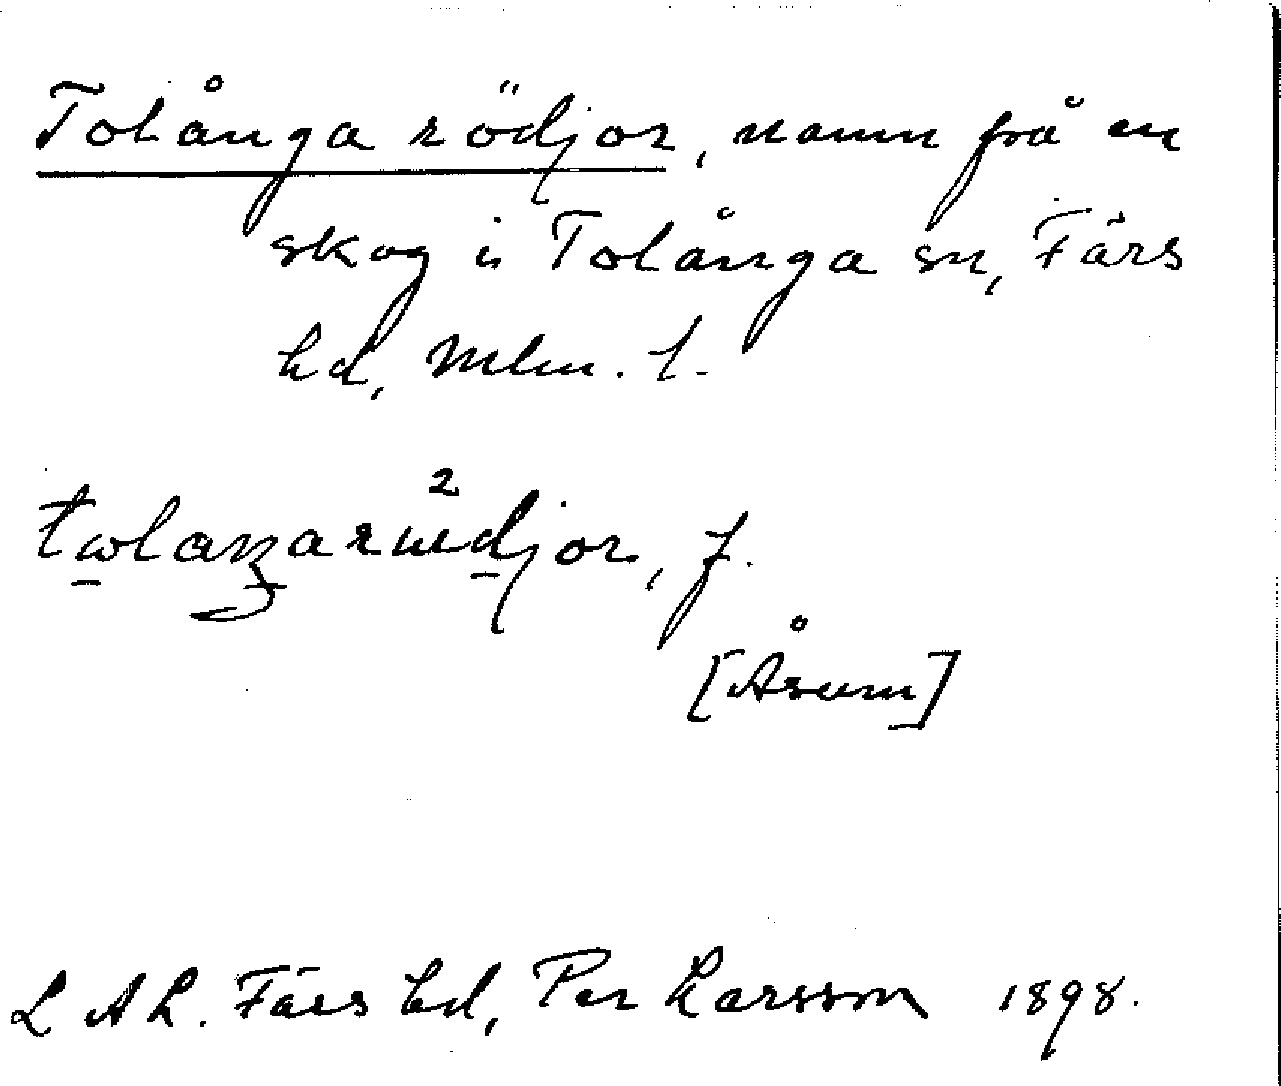 Tolånga rödjor, namn frå en
skog i Tolånga sn, Färs
hd, Mlm. l.
[Åsum]
L A L. Färs hd, Per Larsson 1898.